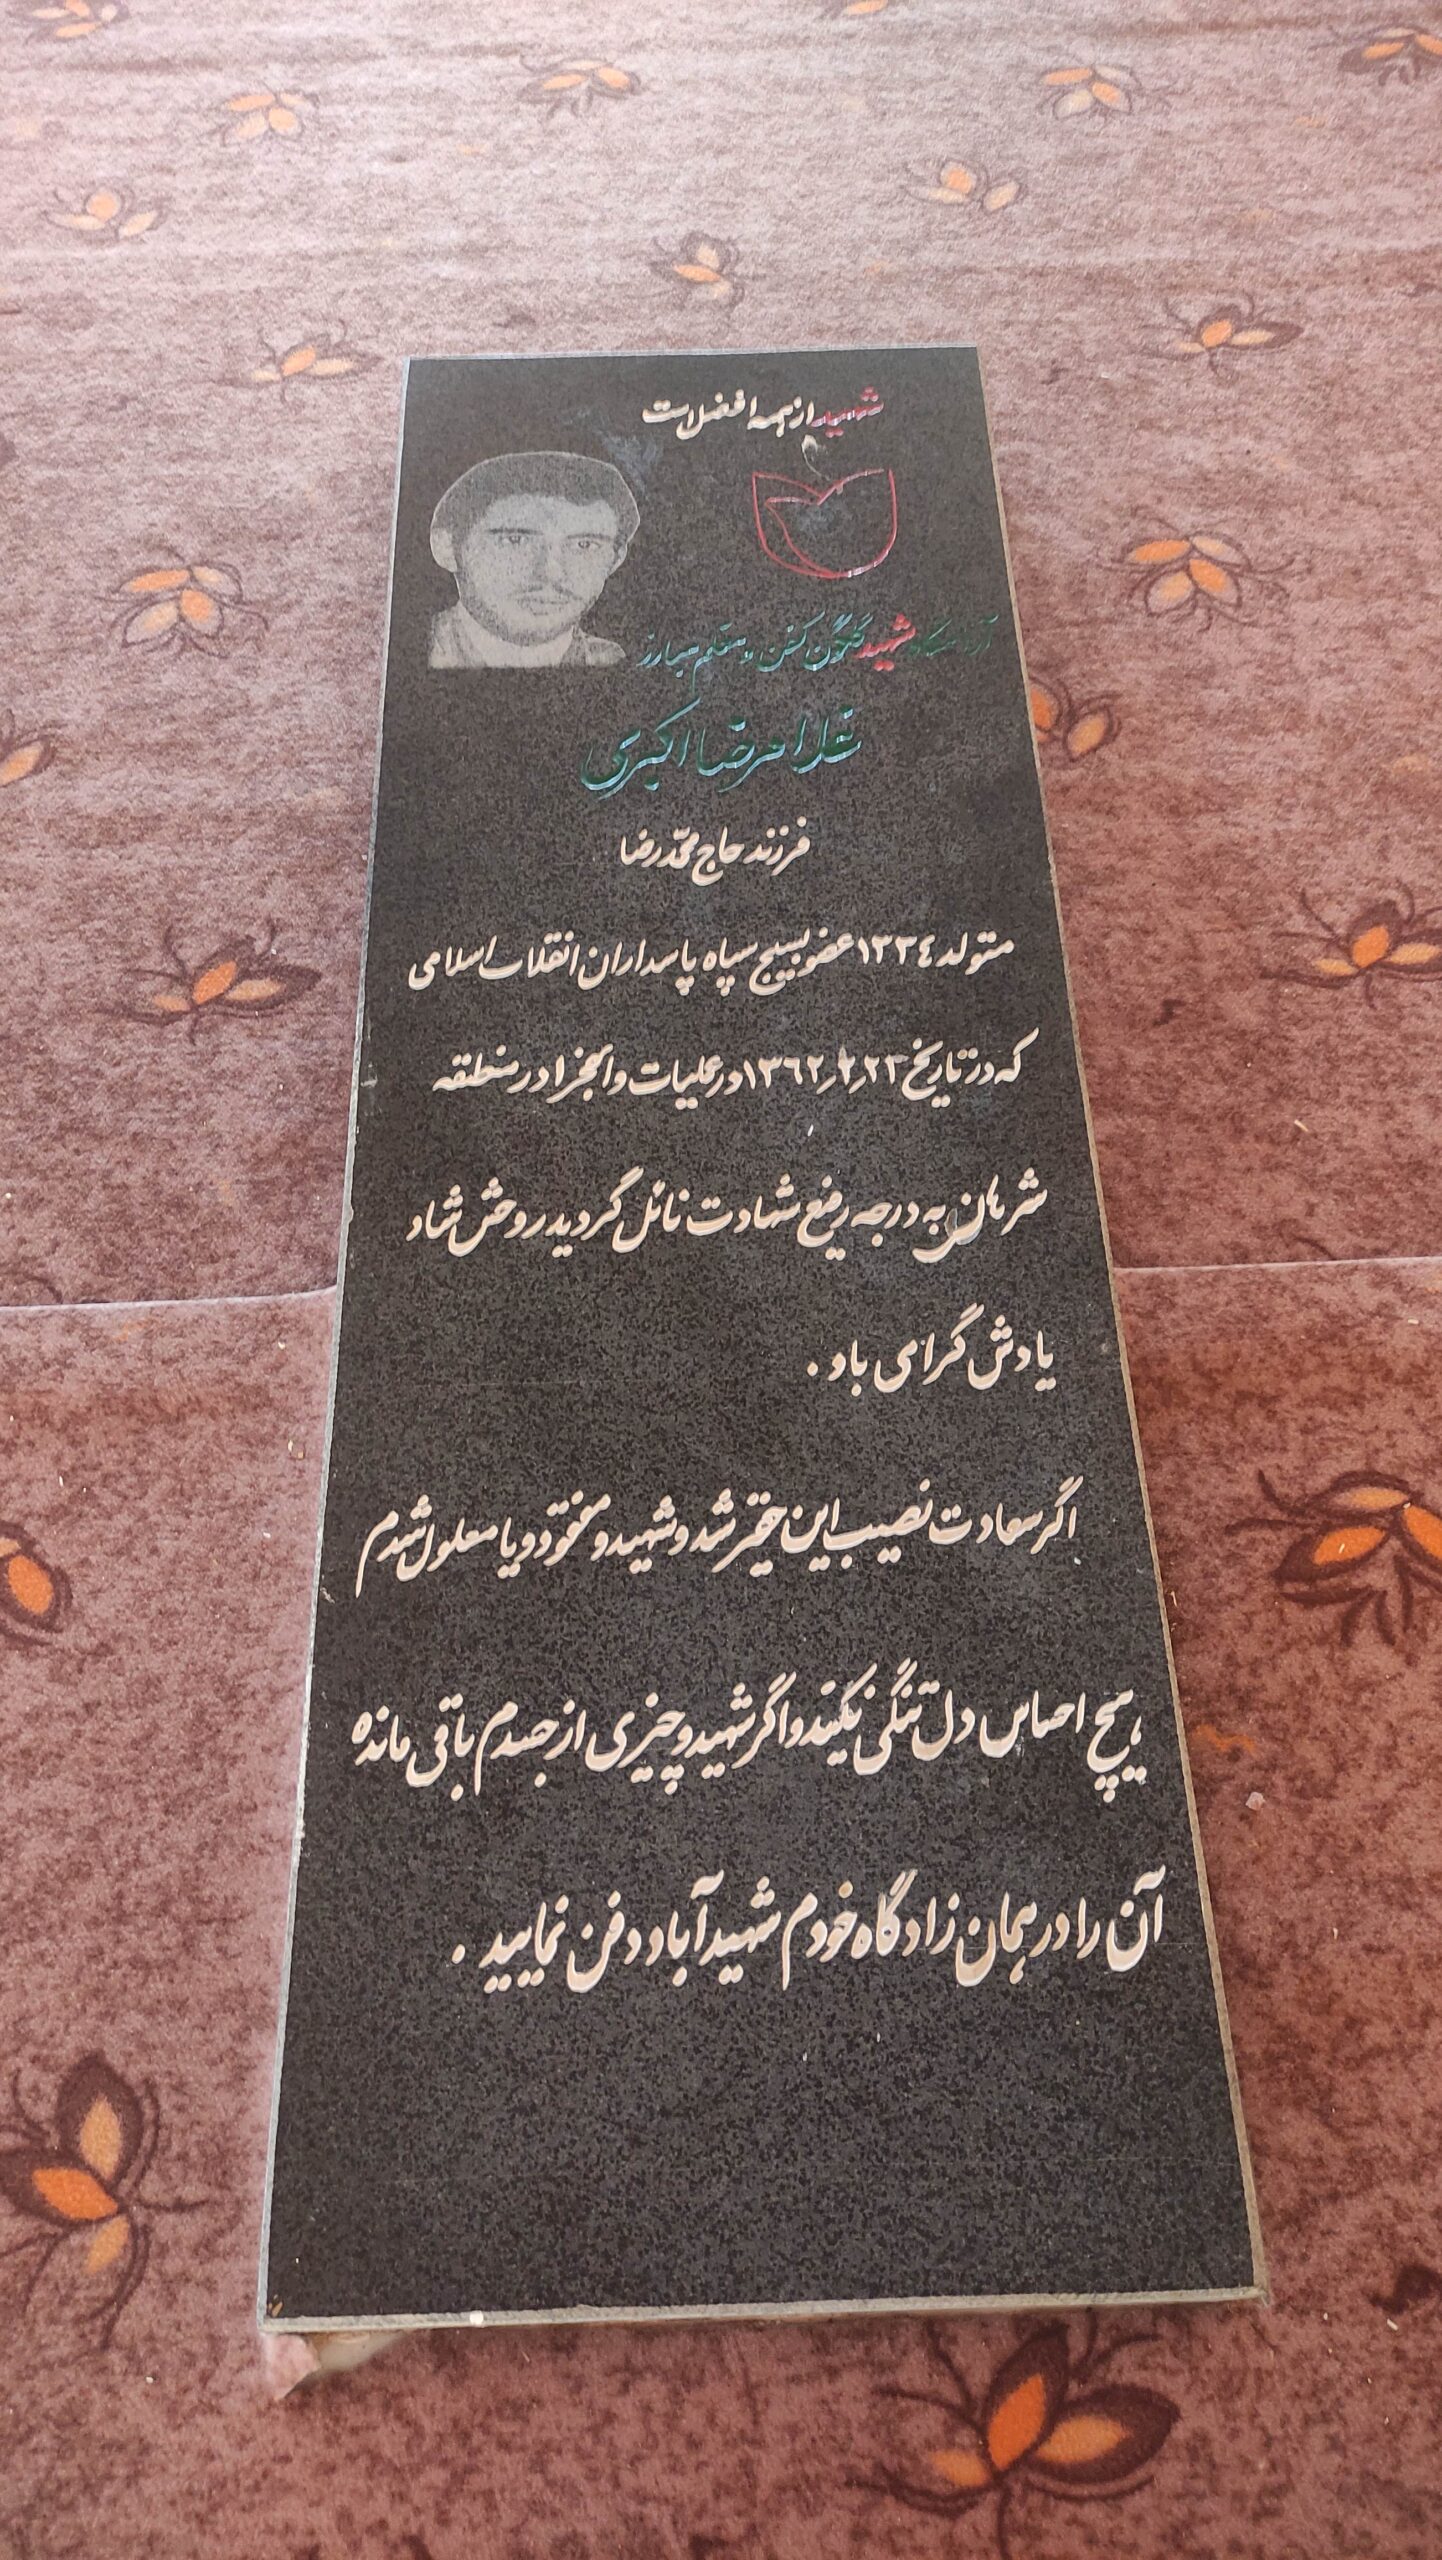 شهید از همه افضل است
آرامگاه شهید گلگون کفن و معلم مبارز
غلامرضا اکبری
فرزند حاج محمّدرضا
متولد ۱۳۳٤ عضو بسیج سپاه پاسداران انقلاب اسلامی
که در تاریخ ۱۳٦۲٫۲٫۲۳ در عملیات والفجر ۱ در منطقه
شرهان به درجه رفیع شهادت نائل گردید روحش شاد
یادش گرامی باد .
اگر سعادت نصیب این حقیر شد و شهید و مفقود و یا معلول شدم
هیچ احساس دل تنگی نکنید و اگر شهید و چیزی از جسدم باقی مانده
آن را در همان زادگاه خودم شهیدآباد دفن نمایید .